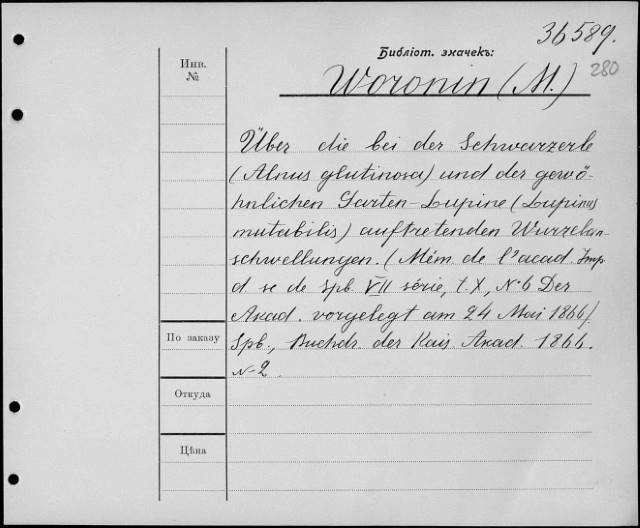 36589.
Библіот. значекъ:
280
Woronin (M.)
Инв.
№
Über die bei der Schwarzerle
(Alnus glutinosa) und der gewö-
hnlichen Garten-Lupine (Lupinus
mutabilis) auftretenden Wurzelan-
schwellungen. (Mém. de l'acad. Imp
d sc de Spb VII série, t. X, №6 Der
Akad. vorgelegt am 24 Mai 1866).
Spb., Buchdr. der Kais Akad. 1866.
№2.
По заказу
Откуда
Цѣна